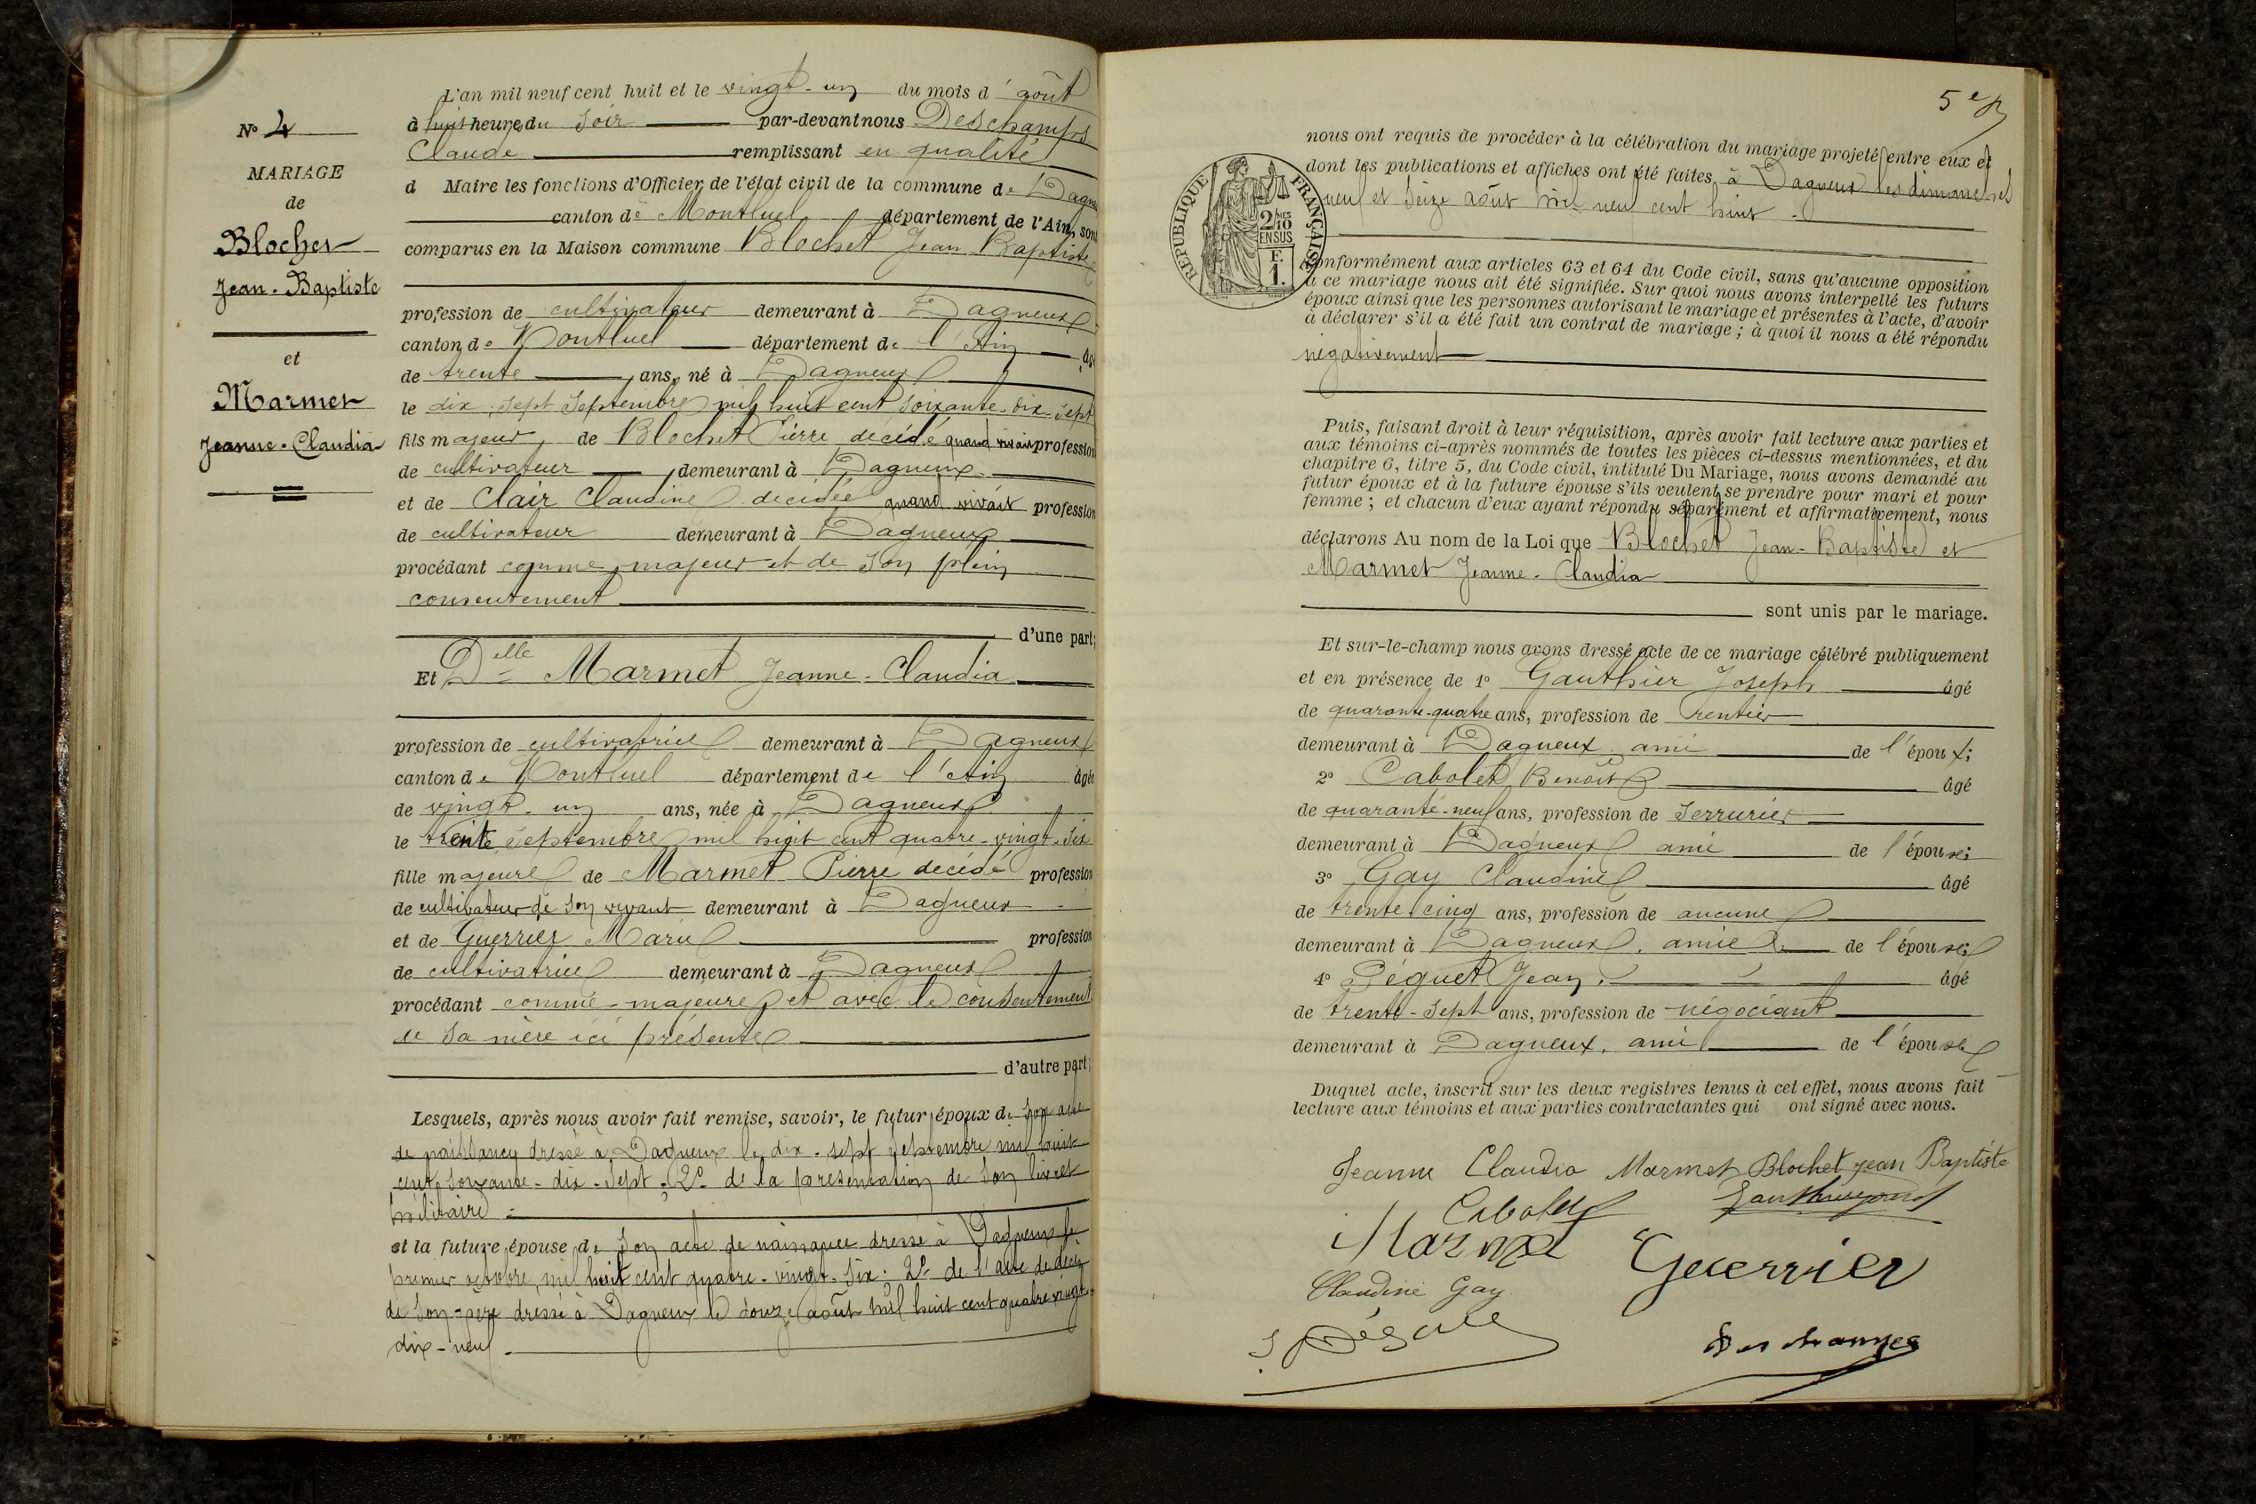 N° 4
MARIAGE
de
Blochet
Jean-Baptiste
et
Marmet
Jeanne-Claudia
L'an mil neuf cent huit et le vingt-un du mois d'août
à huit heures du soir par-devant nous Deschamps
Claude remplissant en qualité
d Maire les fonctions d'Officier de l'état civil de la commune de Dagneux
canton de Montluel département de l'Ain, sont
comparus en la Maison commune Blochet Jean Baptiste
profession de cultivateur demeurant à Dagneux
canton de Montluel département de l'Ain âgé
de trente ans, né à Dagneux
le dix-sept Septembre mil huit cent soixante-dix-sept
fils majeur de Blochet Pierre décédé quand vivait profession
de cultivateur demeurant à Dagneux
et de Clair Claudine décédée quand vivait profession
de cultivateur demeurant à Dagneux
procédant comme majeur et de son plein
consentement
d'une part;
Et Delle Marmet Jeanne-Claudia
profession de cultivatrice demeurant à Dagneux
canton de Montluel département de l'Ain âgée
de vingt-un ans, née à Dagneux
le trente septembre mil huit cent quatre-vingt-six
fille majeure de Marmet Pierre décédé profession
de cultivateur de son vivant demeurant à Dagneux
et de Guerrier Marie profession
de cultivatrice demeurant à Dagneux
procédant comme majeure et avec le consentement
de sa mère ici présente
d'autre part;
Lesquels, après nous avoir fait remise, savoir, le futur époux de son acte
de naissance dressé à Dagneux le dix-sept septembre mil huit
cent soixante-dix-sept, 2° de la présentation de son livret
militaire
et la future épouse de son acte de naissance dressé à Dagneux le
premier octobre mil huit cent quatre-vingt-six. 2° de l'acte de décès
de son père dressé à Dagneux le douze août mil huit cent quatre vingt
dix-neuf.
5e
nous ont requis de procéder à la célébration du mariage projeté entre eux et
dont les publications et affiches ont été faites à Dagneux les dimanches
neuf et seize août mil neuf cent huit.
RÉPUBLIQUE FRANÇAISE
2/10 EN SUS
F. 1.
Conformément aux articles 63 et 64 du Code civil, sans qu'aucune opposition
à ce mariage nous ait été signifiée. Sur quoi nous avons interpellé les futurs
époux ainsi que les personnes autorisant le mariage et présentes à l'acte, d'avoir
à déclarer s'il a été fait un contrat de mariage; à quoi il nous a été répondu
négativement
Puis, faisant droit à leur réquisition, après avoir fait lecture aux parties et
aux témoins ci-après nommés de toutes les pièces ci-dessus mentionnées, et du
chapitre 6, titre 5, du Code civil, intitulé Du Mariage, nous avons demandé au
futur époux et à la future épouse s'ils veulent se prendre pour mari et pour
femme; et chacun d'eux ayant répondu séparément et affirmativement, nous
déclarons Au nom de la Loi que Blochet Jean-Baptiste et
Marmet Jeanne-Claudia
sont unis par le mariage.
Et sur-le-champ nous avons dressé acte de ce mariage célébré publiquement
et en présence de 1° Gauthier Joseph âgé
de quarante-quatre ans, profession de rentier
demeurant à Dagneux ami de l'époux;
2° Cabolet Benoît âgé
de quarante-neuf ans, profession de serrurier
demeurant à Dagneux ami de l'épouse;
3° Gay Claudine âgé
de trente cinq ans, profession de aucune
demeurant à Dagneux. amie de l'épouse;
4° Péguet Jean. âgé
de trente-sept ans, profession de négociant
demeurant à Dagneux. ami de l'épouse
Duquel acte, inscrit sur les deux registres tenus à cet effet, nous avons fait
lecture aux témoins et aux parties contractantes qui ont signé avec nous.
Jeanne Claudia Marmet Blochet jean Baptiste
Cabolet
Marmet Guerrier
Claudine Gay
Deschamps